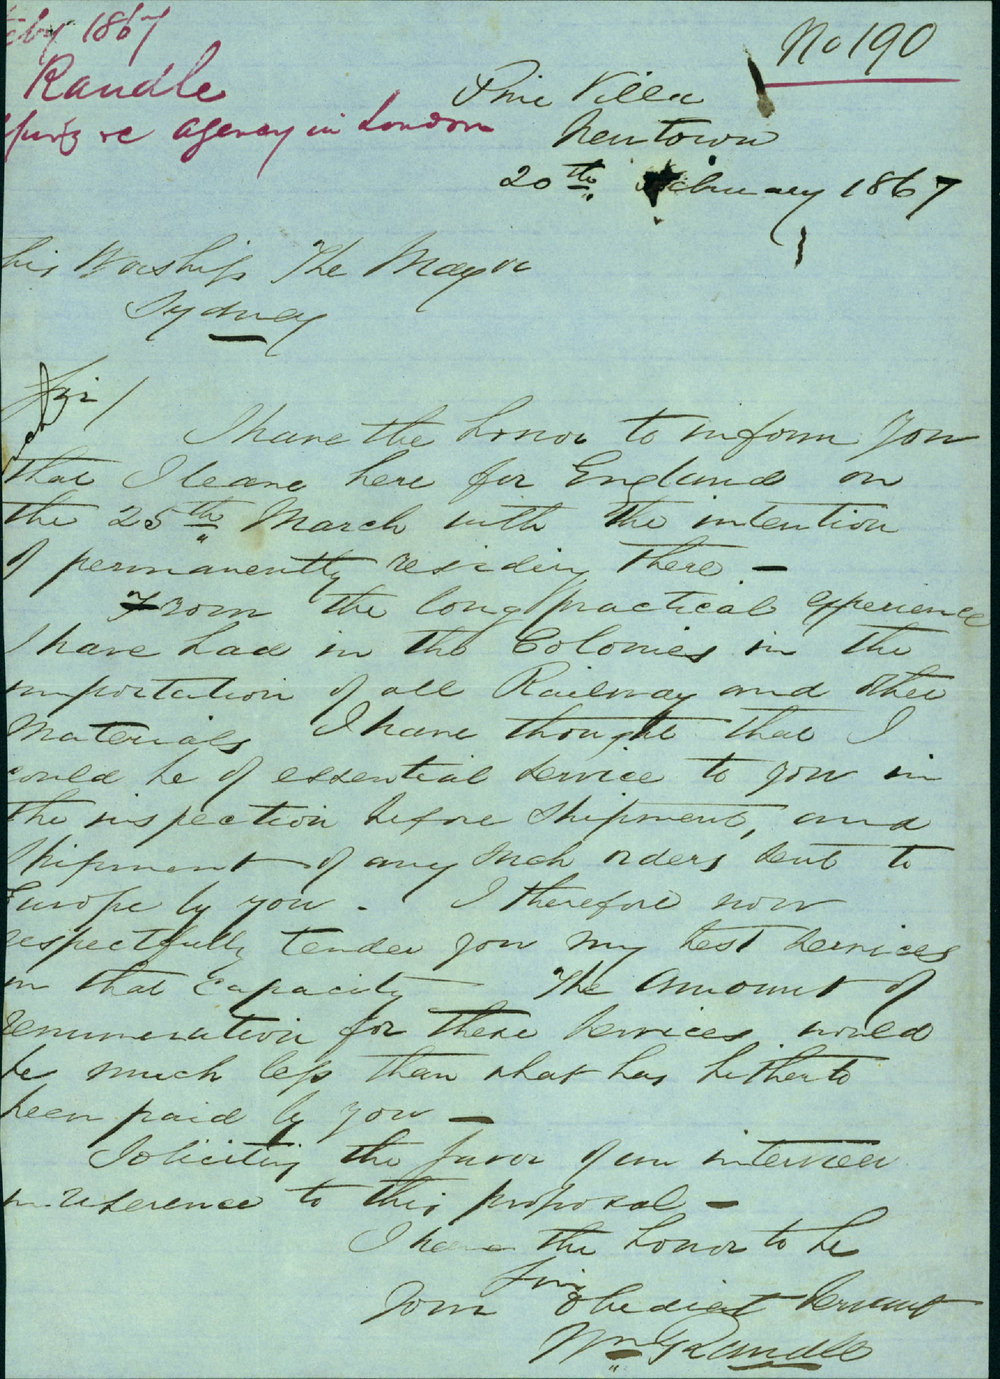 feby 1867
Randle
applyg re agency in London
No 190
Pine Villa
Newtown
20th February 1867
his Worship The Mayor
Sydney
Sir/
I have the honor to inform you
that I leave here for England on
the 25th March with the intention
of permanently residing there. -
From the long practical experience
I have had in the Colonies in the
importation of all Railway and other
Materials I have thought that I
could be of essential service to you in
the inspection before Shipment, and
Shipment of any such orders sent to
Europe by you. I therefore now
respectfully tender you my best services
in that Capacity The amount of
remuneration for these services would
be much less than what has hitherto
been paid by you -
Soliciting the favor of an interview
in reference to this proposal -
I have the honor to be
Sir
Your obedient servant
Wm Randle